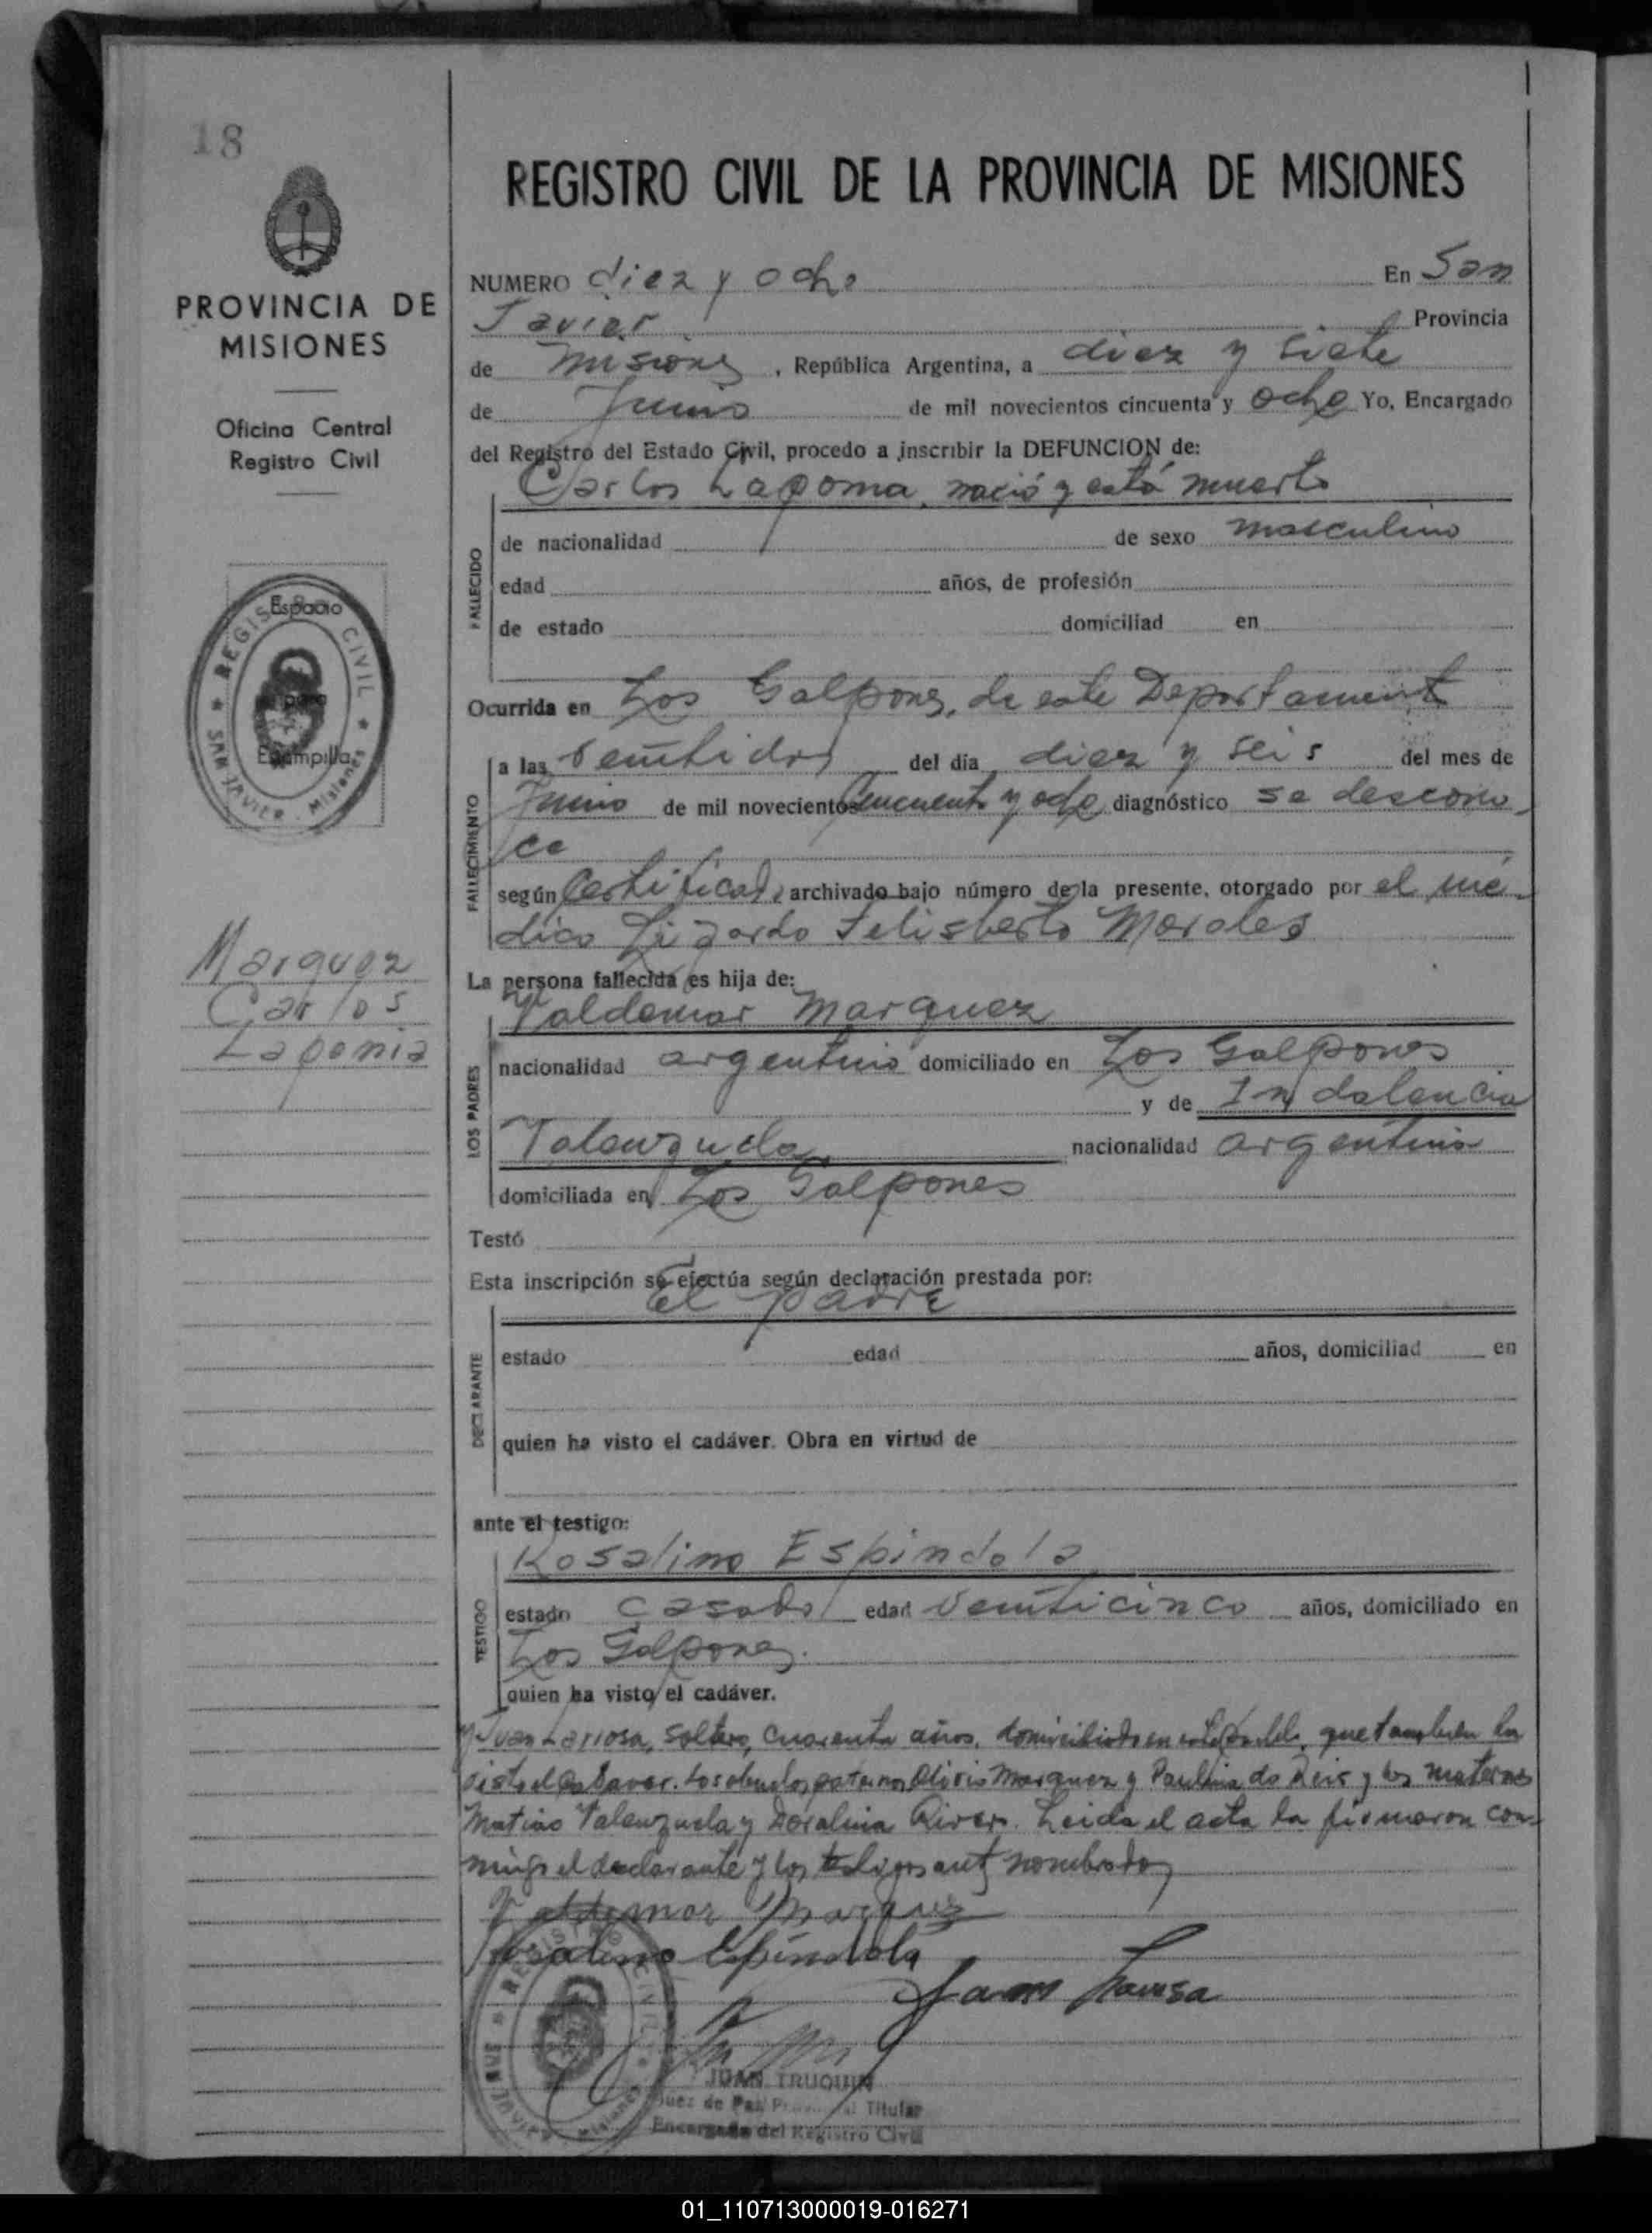 18
PROVINCIA DE
MISIONES
Oficina Central
Registro Civil
Espacio
para
Estampilla
REGISTRO CIVIL
SAN JAVIER . Misiones
Marquez
Carlos
Laponia
REGISTRO CIVIL DE LA PROVINCIA DE MISIONES
NUMERO diez y ocho En San
Javier Provincia
de Misiones, República Argentina, a diez y siete
de Junio de mil novecientos cincuenta y ocho Yo, Encargado
del Registro del Estado Civil, procedo a inscribir la DEFUNCION de:
Carlos Lapoma, nació y está muerto
FALLECIDO
de nacionalidad de sexo masculino
edad años, de profesión
de estado domiciliad en
Ocurrida en Los Galpones, de este Departamento
FALLECIMIENTO
a las veintidos del día diez y seis del mes de
Junio de mil novecientos cincuenta y ocho diagnóstico se descono-
ce
según Certificado archivado bajo número de la presente, otorgado por el mé-
dico Lizardo Felisberto Morales
La persona fallecida es hija de:
LOS PADRES
Valdemar Marquez
nacionalidad argentino domiciliado en Los Galpones
y de Indalencia
Valenzuela nacionalidad argentina
domiciliada en Los Galpones
Testó
Esta inscripción se efectúa según declaración prestada por:
El padre
DECLARANTE
estado edad años, domiciliad en
quien ha visto el cadáver. Obra en virtud de
ante el testigo:
TESTIGO
Rosalino Espindola
estado casado edad veinticinco años, domiciliado en
Los Galpones.
quien ha visto el cadáver.
y Juan Lariosa, soltero, cuarenta años, domiciliado en este pueblo, que tambien ha
visto el cadaver. Los abuelos paternos Marquez y Paulina do Reis y los maternos
Matias Valenzuela y Doralina Rivero. Leida el acta la firmaron con-
migo el declarante y los testigos antes nombrados
Valdemar Marquez
Rosalino Espindola
Juan
REGISTRO CIVIL
SAN JAVIER . Misiones
JUAN TRUQUIN
Juez de Paz Titular
Encargado del Registro Civil
01_110713000019-016271